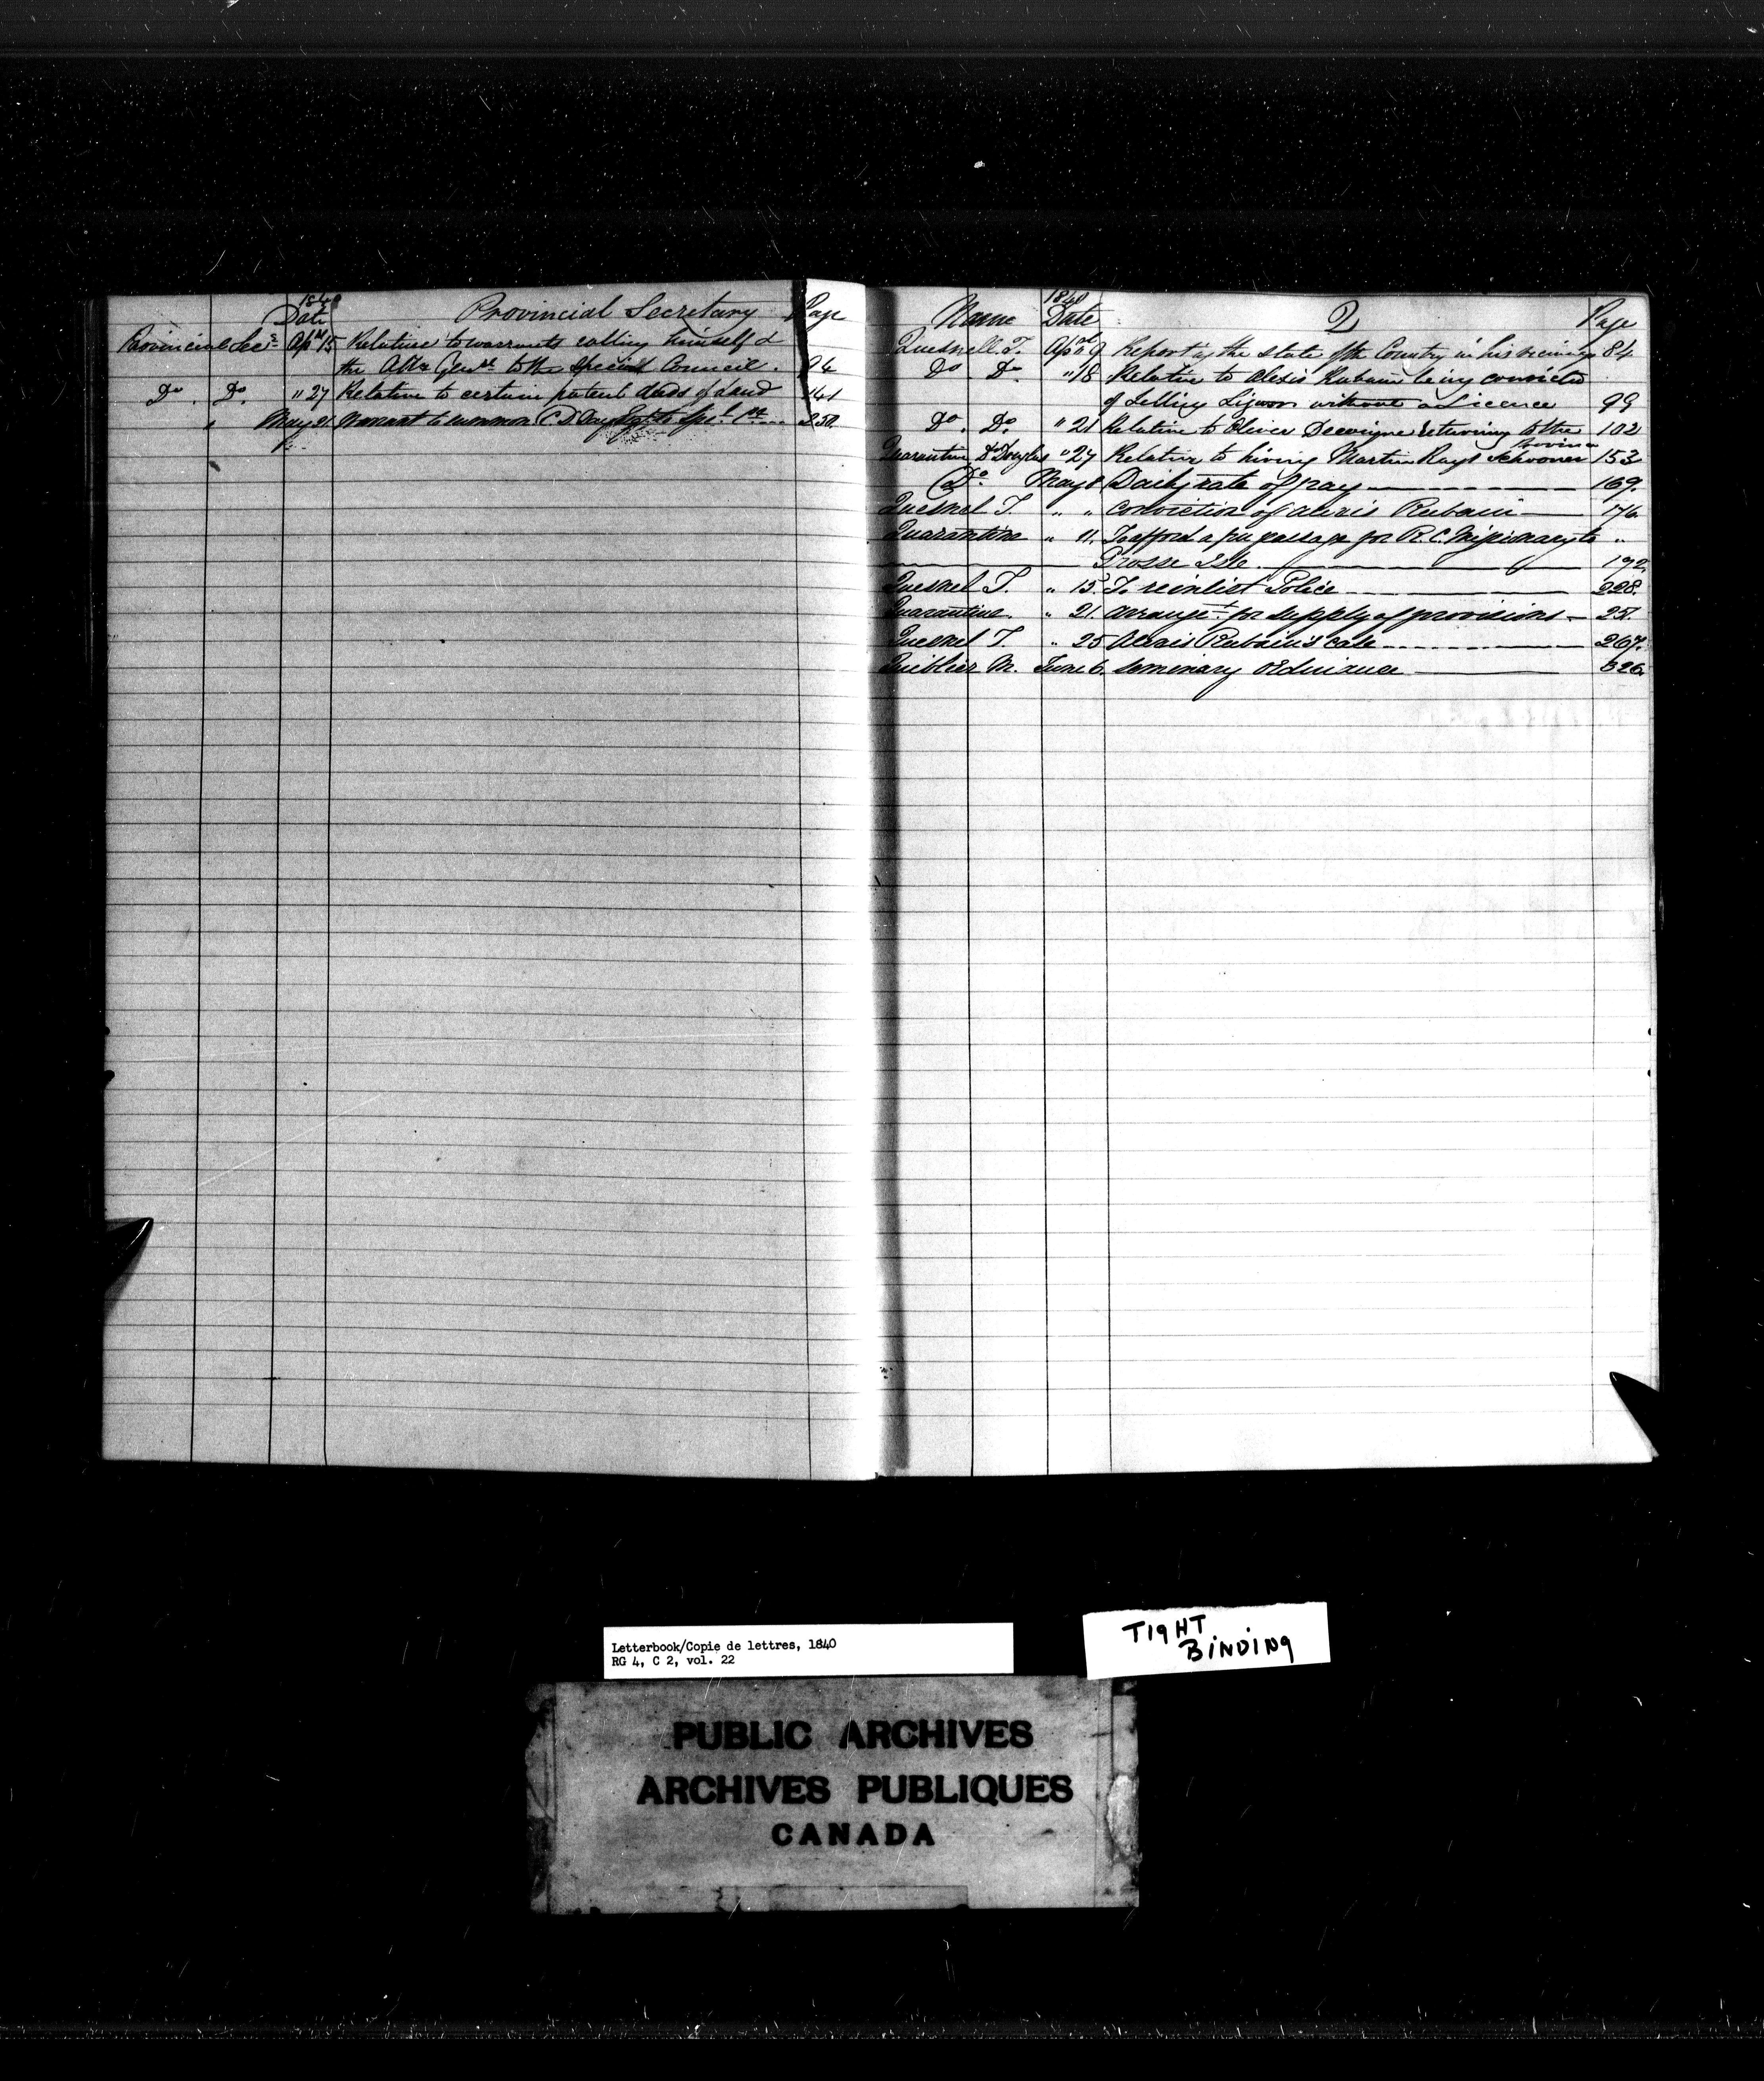 1840
Date Provincial Secretary Page
Provincial Secy Apl 15 Relative to warrants calling himself &
the Atty Genl to the Special Council. 94
Do. Do. " 27 Relative to certain patent deeds of land 141
" May 21 Warrant to summon C D Day to Spl Cl 250
1840
Name Date Q Page
Quesnell. T. April 9 Reporting the state of the Country in his vicinity 84
Do Do " 18 Relative to Alexis Rubain being convicted
of Selling Liquor without a Licence 99
Do. Do. " 21 Relative to Oliver returning to the 102
Province
Quarantine Dr Douglas " 27 Relative to hiring Martin Rays Schooner 153
Do. May 8 Daily rate of pay 169.
Quesnel T. " " Conviction of Alexis Rubain 176
Quarantine " 11. To afford a free passage for R. C. Missionary to "
Grosse Isle. 192.
Quesnel T. " 15. To reinlist Police 228.
Quarantine. " 21. Arranget for supply of provisions 251.
Quesnel T. " 25 Alexis Rubain's case 267.
Quiblier M. June 6. Seminary Ordinance 326.
Letterbook/Copie de lettres, 1840
RG 4, C 2, vol. 22
TIGHT
BINDING
PUBLIC ARCHIVES
ARCHIVES PUBLIQUES
CANADA